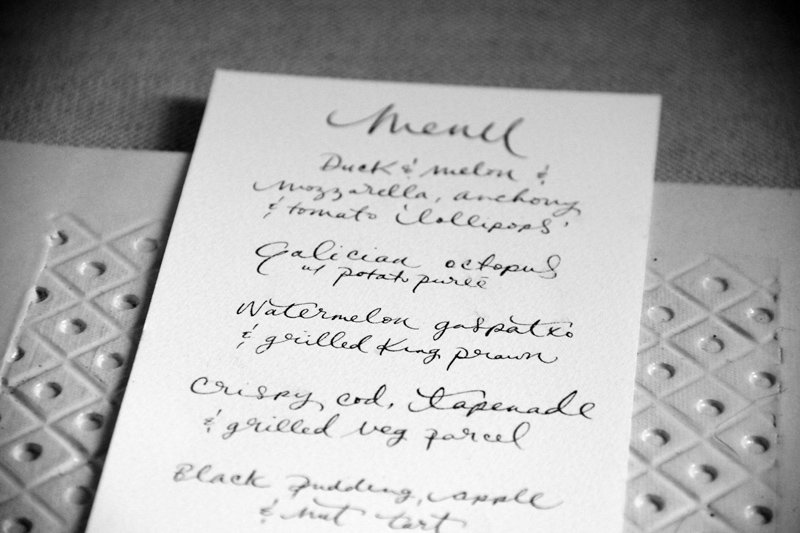 Menu
Duck & melon &
mozzarella, anchovy
& tomato 'lollipops'
Galician octopus
w/ potato purée
Watermelon gaspatxo
& grilled King prawn
Crispy cod, tapenade
& grilled veg parcel
Black pudding, apple
& nut tart